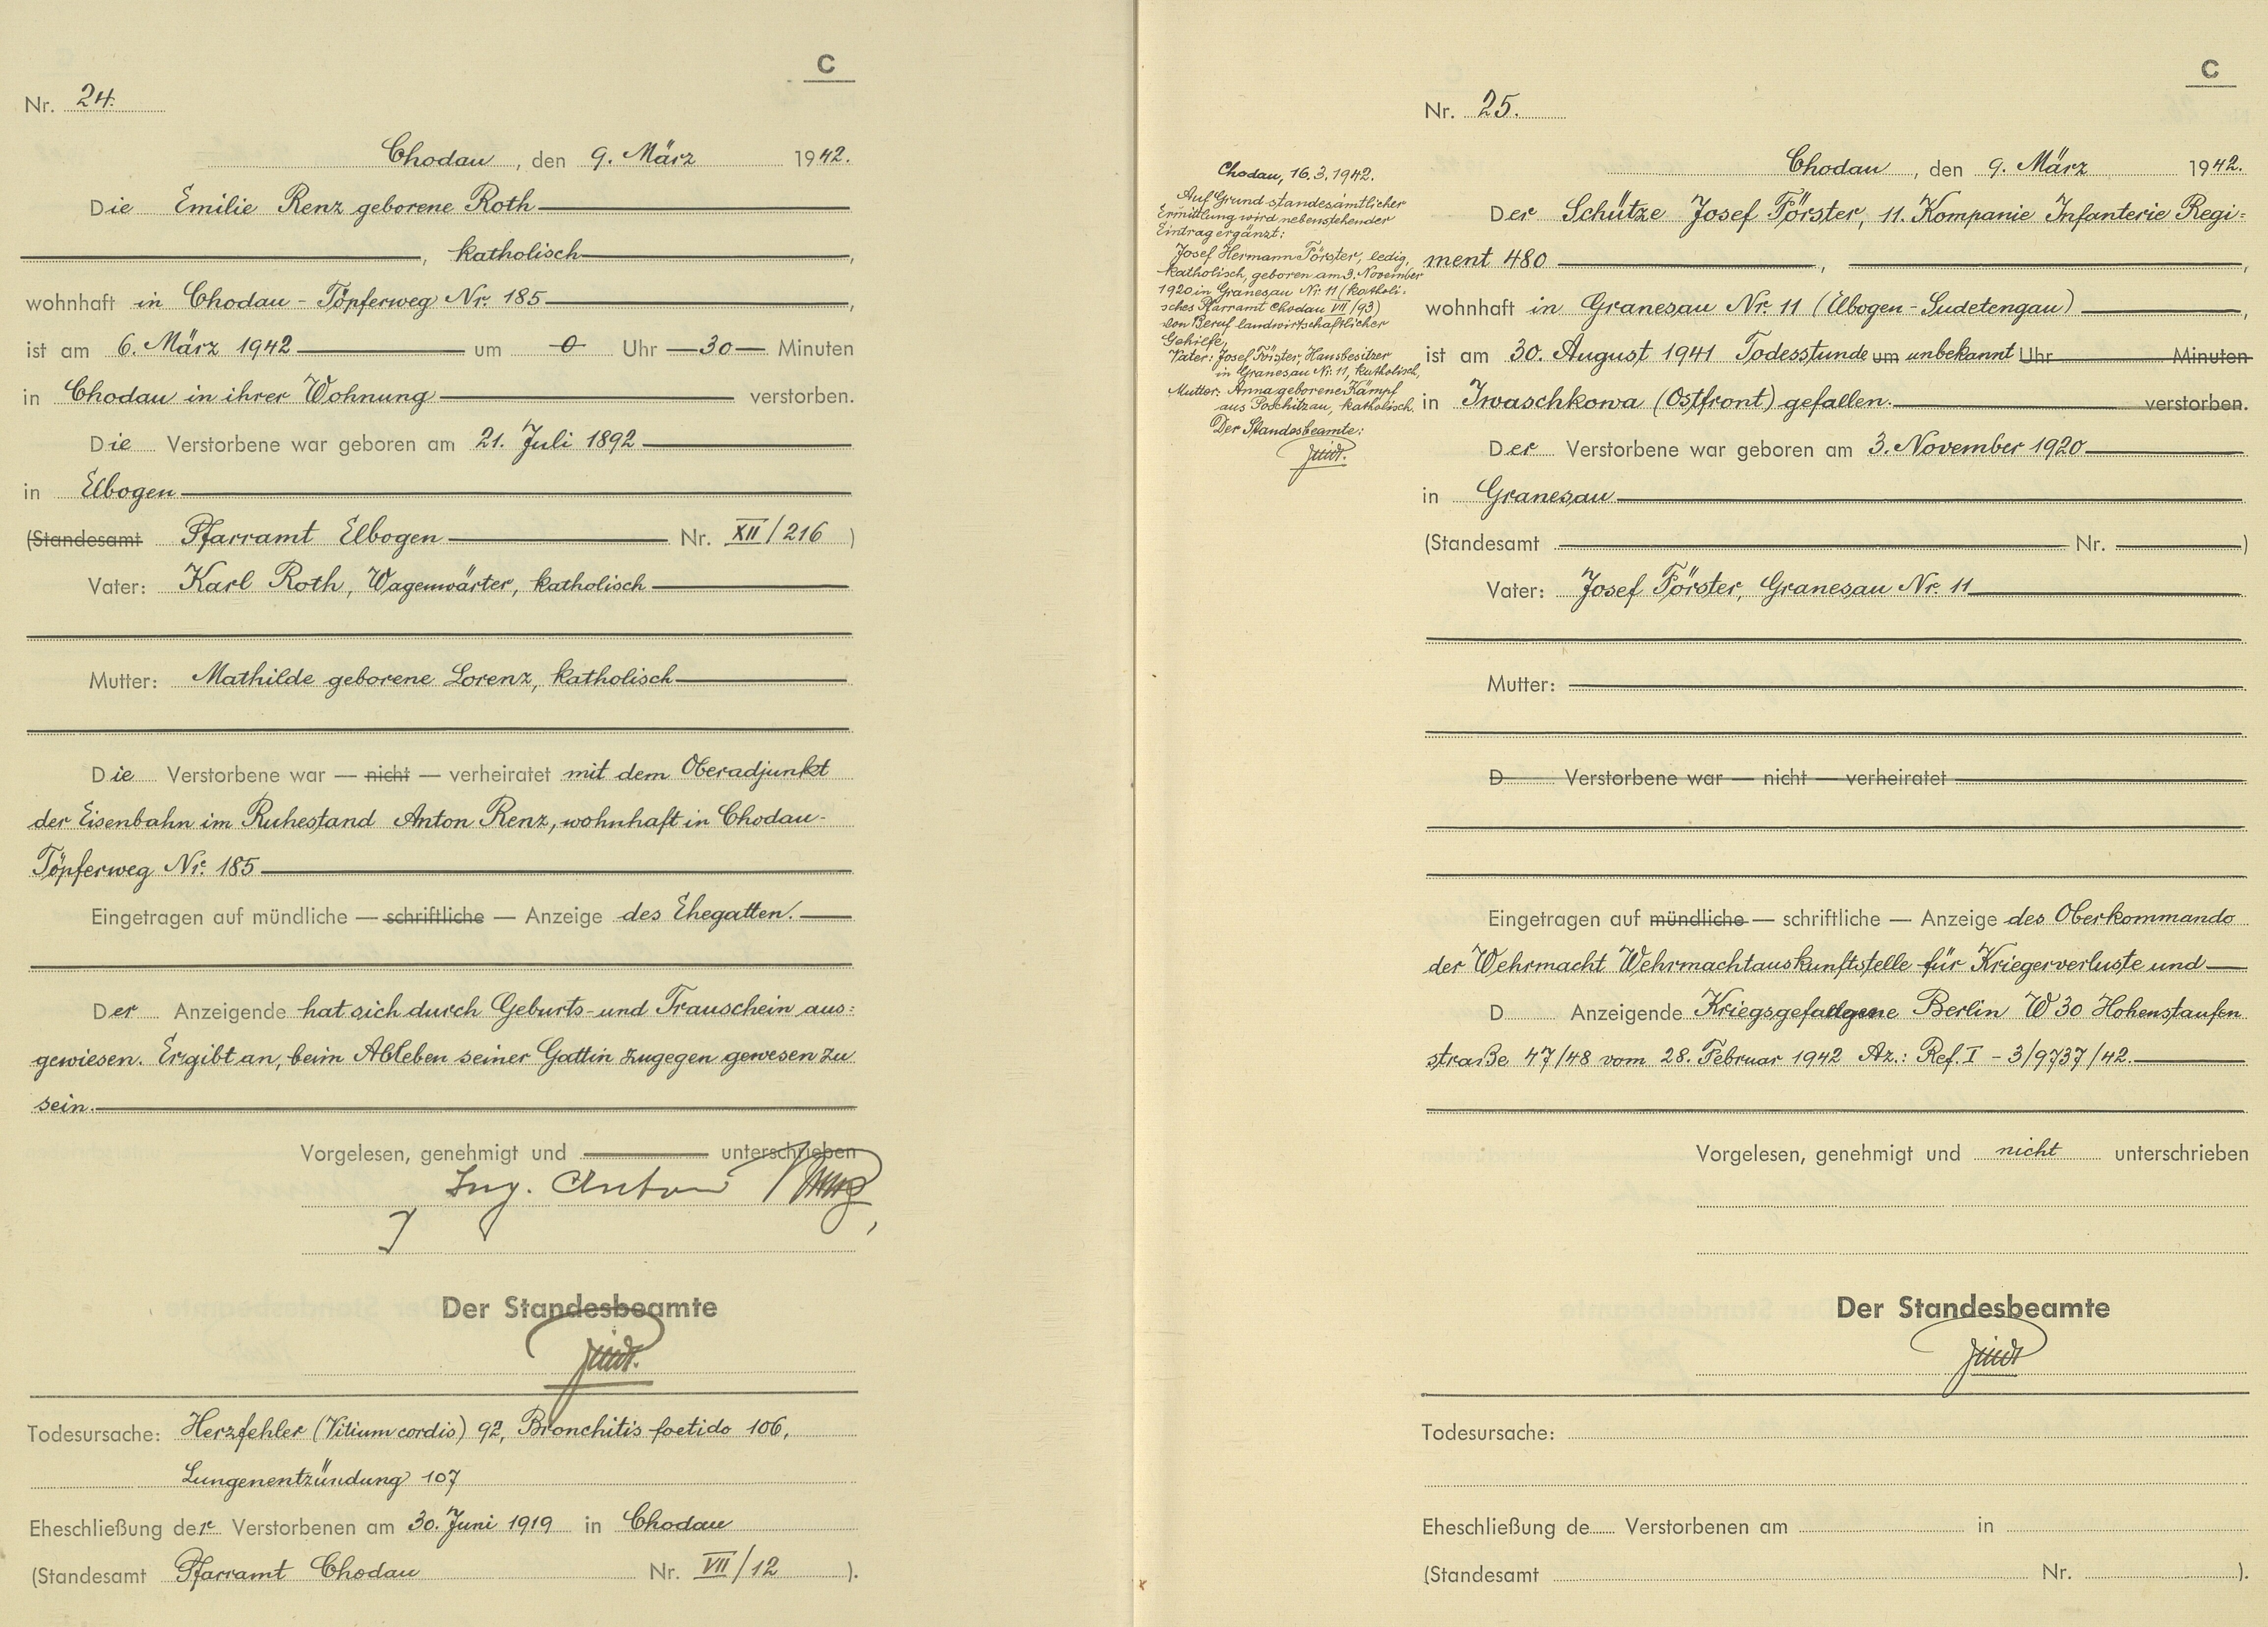 C
Nr. 24.
Chodau, den 9. März 1942.
Die Emilie Renz geborene Roth
, katholisch,
wohnhaft in Chodau - Töpferweg Nr. 185,
ist am 6. März 1942 um 0 Uhr 30 Minuten
in Chodau in ihrer Wohnung verstorben.
Die Verstorbene war geboren am 21. Juli 1892
in Elbogen
(Standesamt Pfarramt Elbogen Nr. XII/216)
Vater: Karl Roth, Wagenwärter, katholisch
Mutter: Mathilde geborene Lorenz, katholisch
Die Verstorbene war — nicht — verheiratet mit dem Oberadjunkt
der Eisenbahn im Ruhestand Anton Renz, wohnhaft in Chodau-
Töpferweg Nr. 185
Eingetragen auf mündliche — schriftliche — Anzeige des Ehegatten.
Der Anzeigende hat sich durch Geburts- und Trauschein aus=
gewiesen. Er gibt an, beim Ableben seiner Gattin zugegen gewesen zu
sein.
Vorgelesen, genehmigt und unterschrieben
Ing. Anton Renz
Der Standesbeamte
Todesursache: Herzfehler (Vitium cordis) 92, Bronchitis foetido 106,
Lungenentzündung 107
Eheschließung der Verstorbenen am 30. Juni 1919 in Chodau
(Standesamt Pfarramt Chodau Nr. VII/12).
C
Nr. 25.
Chodau, den 9. März 1942.
Der Schütze Josef Förster, 11. Kompanie Infanterie Regi=
ment 480, ,
wohnhaft in Granesau Nr. 11 (Elbogen - Sudetengau),
ist am 30. August 1941 Todesstunde um unbekannt Uhr Minuten
in Iwaschkowa (Ostfront) gefallen. verstorben.
Der Verstorbene war geboren am 3. November 1920
in Granesau
(Standesamt Nr. )
Vater: Josef Förster, Granesau Nr. 11
Mutter:
D Verstorbene war — nicht — verheiratet
Eingetragen auf mündliche — schriftliche — Anzeige des Oberkommando
der Wehrmacht Wehrmachtauskunftstelle für Kriegerverluste und
D Anzeigende Kriegsgefangene Berlin W 30 Hohenstaufen
straße 47/48 vom 28. Februar 1942 Az.: Ref. I - 3/9737/42.
Vorgelesen, genehmigt und nicht unterschrieben
Der Standesbeamte
Todesursache:
Eheschließung de Verstorbenen am in
(Standesamt Nr. ).
Chodau, 16.3.1942.
Auf Grund standesamtlicher
Ermittlung wird nebenstehender
Eintrag ergänzt:
Josef Hermann Förster, ledig,
katholisch, geboren am 3. November
1920 in Granesau Nr. 11 (katholi=
sches Pfarramt Chodau VII/93)
von Beruf landwirtschaftlicher
Gehilfe,
Vater: Josef Förster, Hausbesitzer
in Granesau Nr. 11, katholisch,
Mutter: Anna geborene Kämpf
aus Poschitzau, katholisch.
Der Standesbeamte: